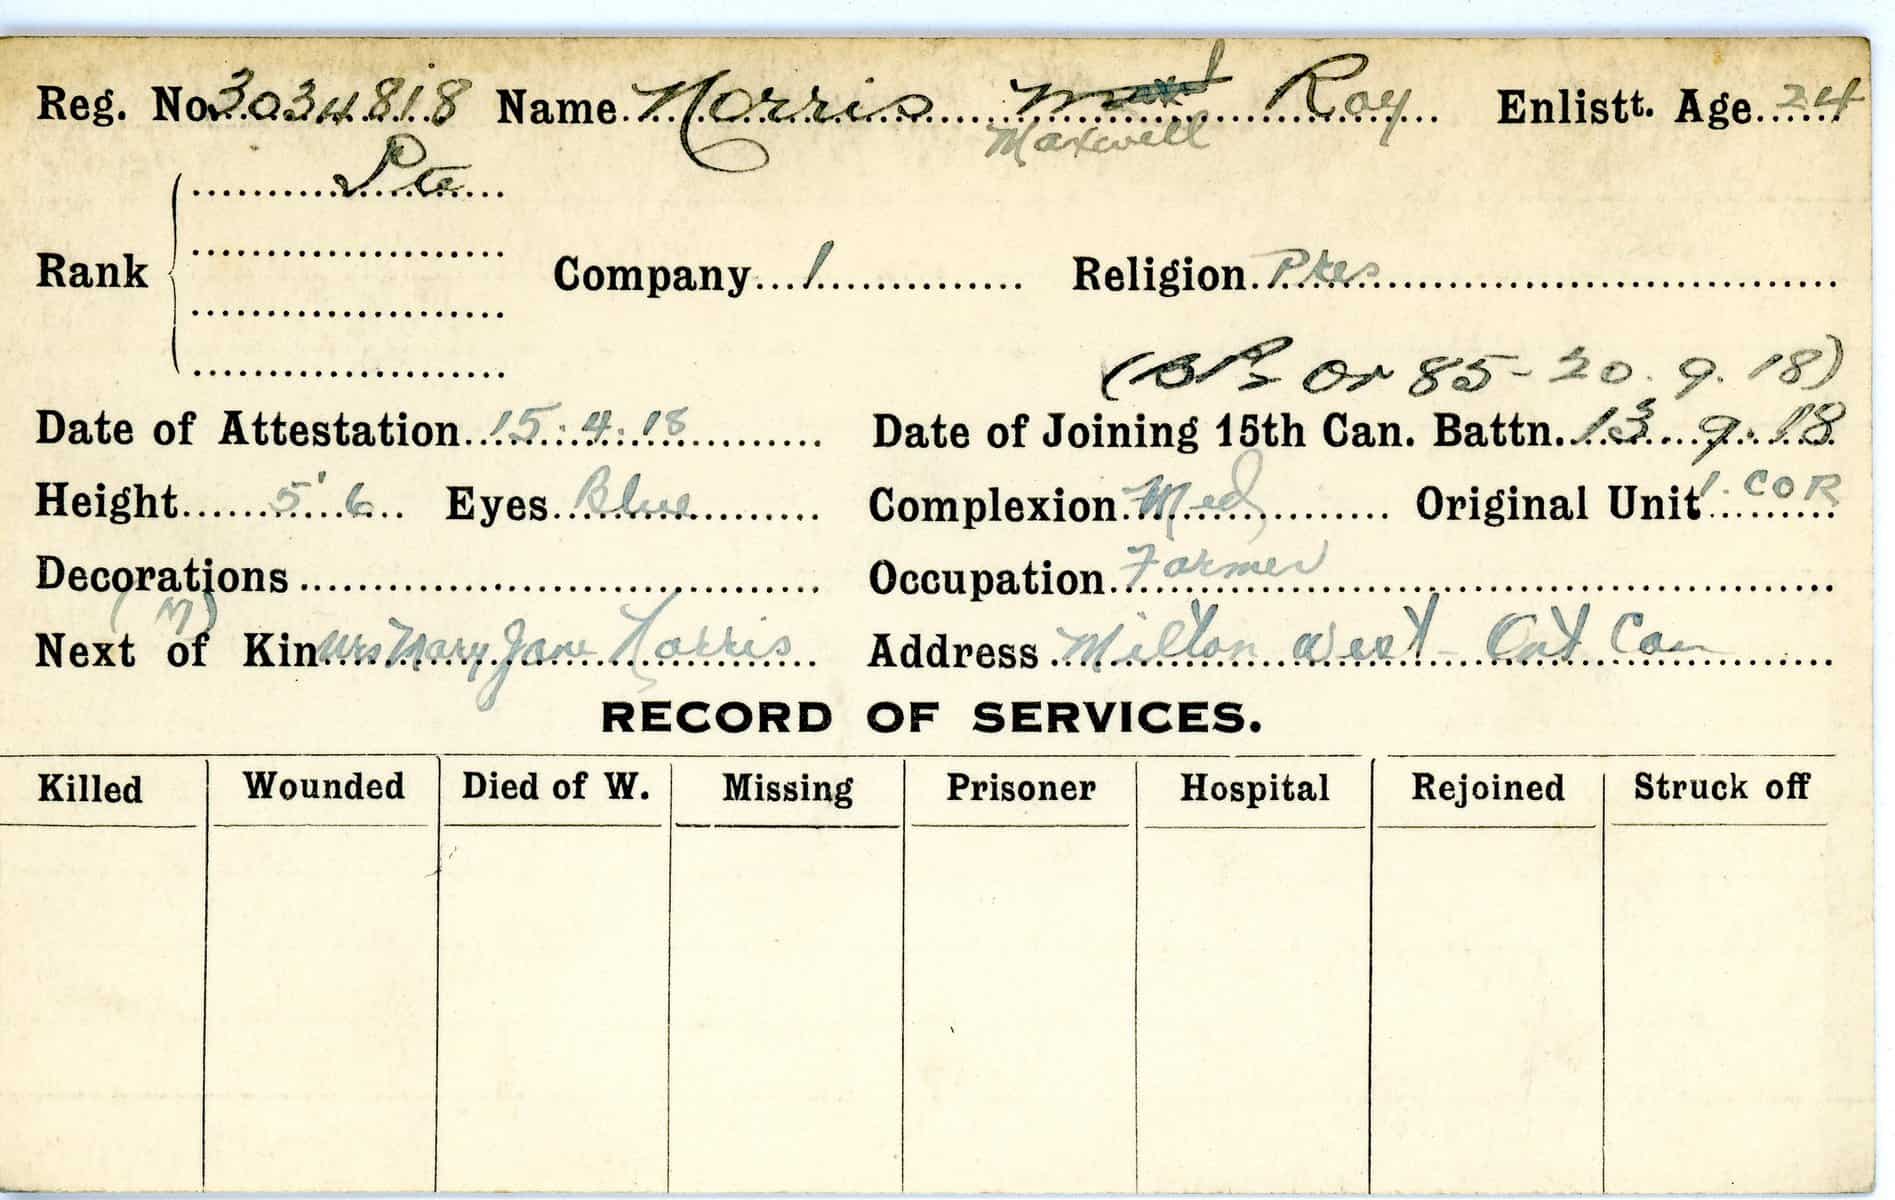 Reg. No. 3034818 Name Norris Roy Enlistt. Age 24
Maxwell
Pte
Rank Company 1 Religion Pres
Or 85 - 20. 9. 18)
Date of Attestation 15. 4. 18 Date of Joining 15th Can. Battn. 13 9. 18
Height 5' 6 Eyes Blue Complexion Med Original Unit 1. C O R
Decorations Occupation Farmer
(M)
Next of Kin Mrs Mary Jane Norris Address Milton West - Ont Can
RECORD OF SERVICES.
Killed Wounded Died of W. Missing Prisoner Hospital Rejoined Struck off